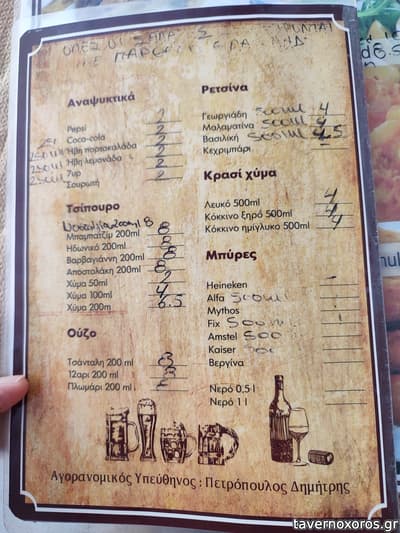 ΟΛΕΣ ΟΙ ΣΑΛΑ
ΜΕ
Αναψυκτικά
Pepsi 2
Coca-cola 2
250ml Ηβη πορτοκαλάδα 2
250ml Ηβη λεμονάδα 2
250ml 7up 2
Σουρωτή 2
Τσίπουρο
200ml 8
Μπαμπατζίμ 200ml 8
Ηδωνικό 200ml 8
Βαρβαγιάννη 200ml 8
Αποστολάκη 200ml 8
Χύμα 50ml 2
Χύμα 100ml 4
Χύμα 200m 6.5
Ούζο
Τσάνταλη 200 ml 8
12αρι 200 ml 8
Πλωμάρι 200 ml
Ρετσίνα
Γεωργιάδη 500ml 4
Μαλαματίνα 500ml 4
Βασιλική 500ml 4.5
Κεχριμπάρι –
Κρασί χύμα
Λευκό 500ml 4
Κόκκινο ξηρό 500ml 4
Κόκκινο ημίγλυκο 500ml 4
Μπύρες
Heineken
Alfa 500ml
Mythos
Fix 500m
Amstel 500
Kaiser
Βεργίνα
Νερό 0,5 l
Νερό 1 l
Αγορανομικός Υπεύθηνος : Πετρόπουλος Δημήτρης
tavernoxoros.gr